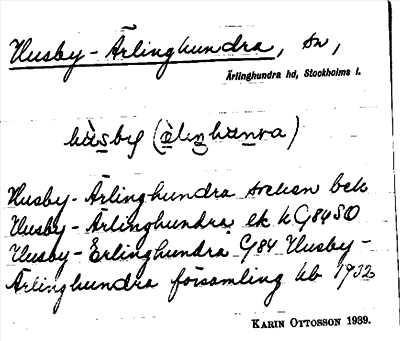 Husby-Ärlinghundra, sn,
Ärlinghundra hd, Stockholms l.
Husby-Ärlinghundra socken bek
Husby-Ärlinghundra ek kG84SO
Husby-Erlinghundra G84 Husby-
Ärlinghundra församling kb 1932
KARIN OTTOSSON 1939.